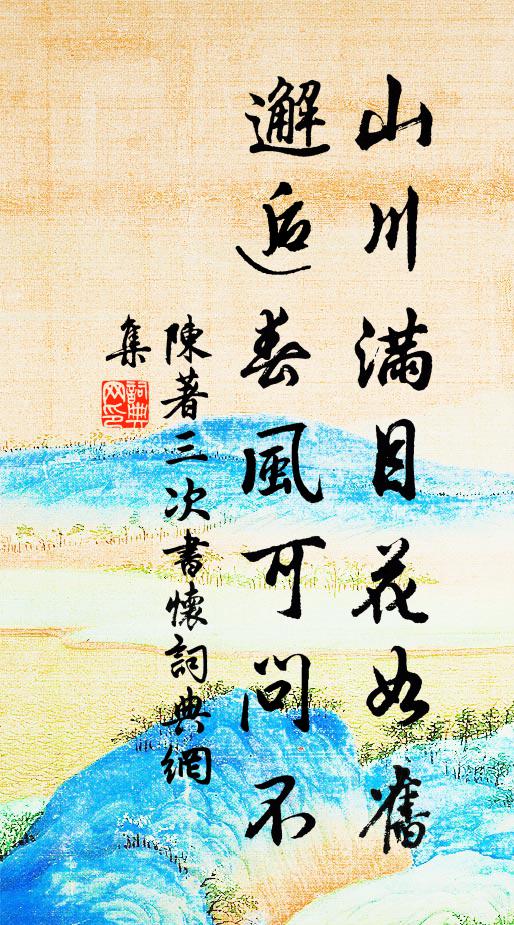 山川滿目花如舊
邂逅春風可問不
陳著三次書懷詞典網
集
詞典
网印